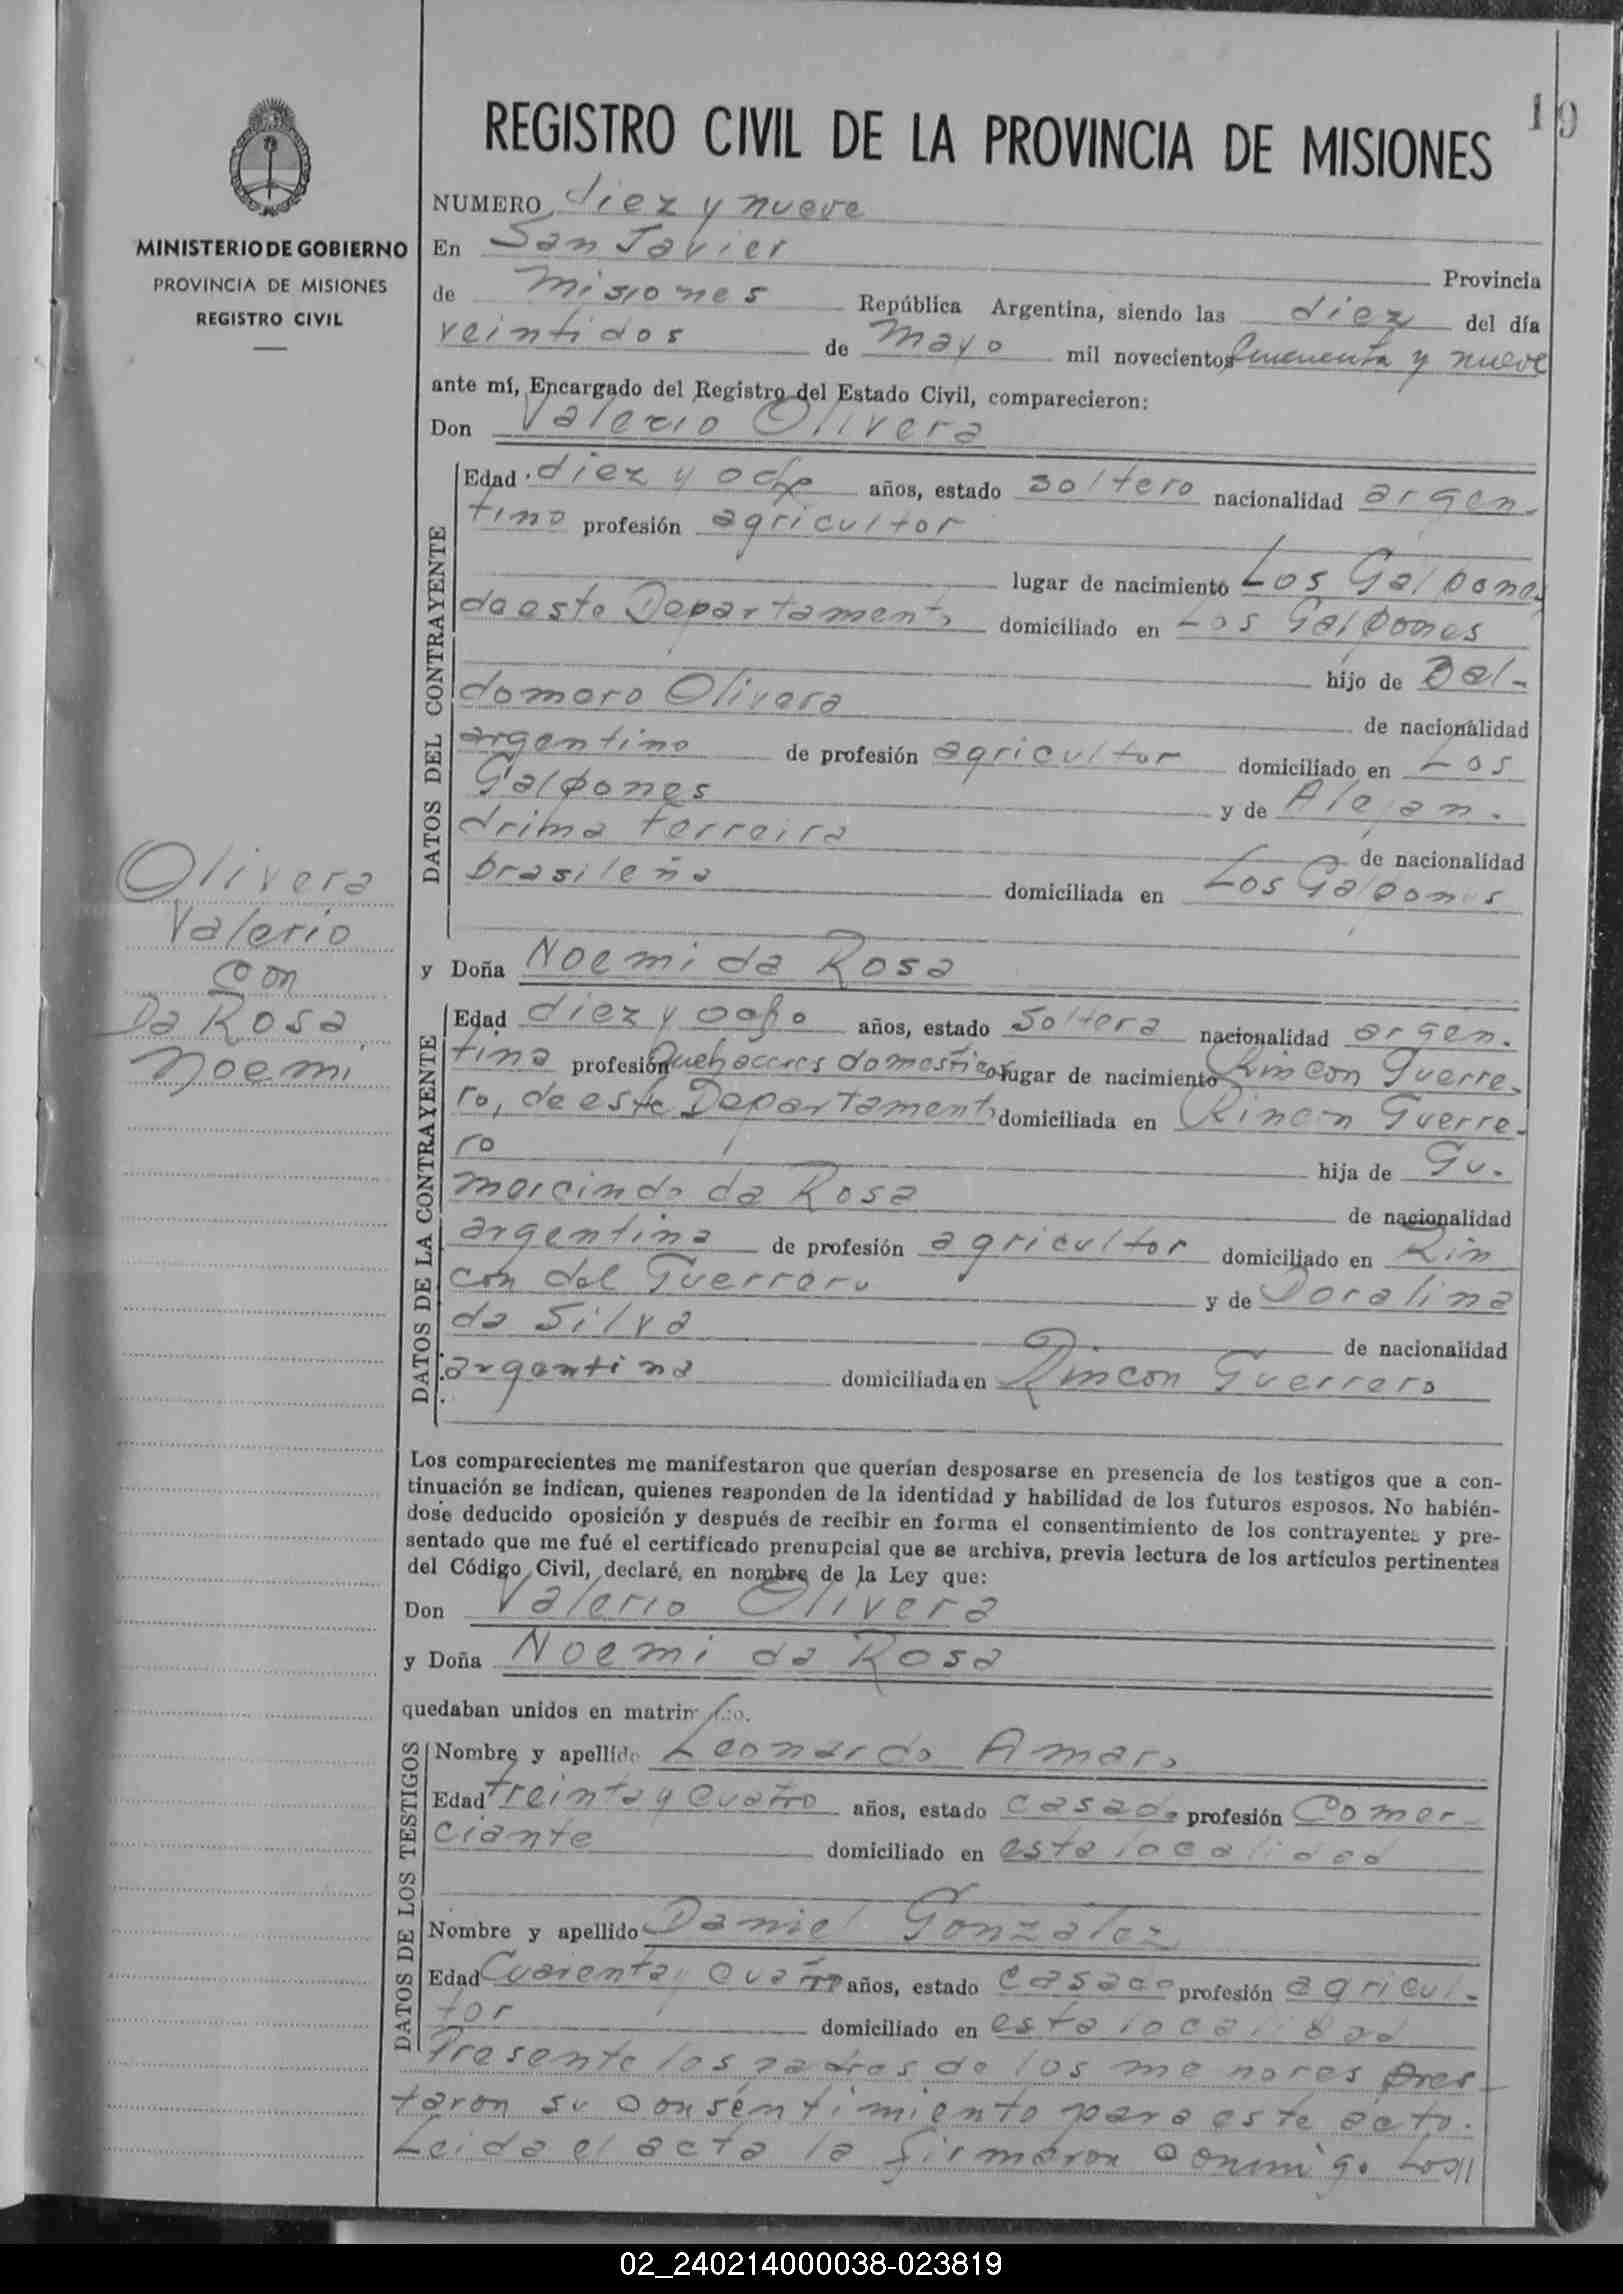 19
REGISTRO CIVIL DE LA PROVINCIA DE MISIONES
MINISTERIO DE GOBIERNO
PROVINCIA DE MISIONES
REGISTRO CIVIL
NUMERO diez y nueve
En San Javier Provincia
de Misiones República Argentina, siendo las diez del día
veintidos de Mayo mil novecientos Cincuenta y nueve
ante mí, Encargado del Registro del Estado Civil, comparecieron:
Don Valerio Olivera
DATOS DEL CONTRAYENTE
Edad diez y ocho años, estado soltero nacionalidad argen-
tino profesión agricultor
lugar de nacimiento Los Galpones
de este Departamento domiciliado en Los Galpones
hijo de Bal-
domero Olivera de nacionalidad
argentino de profesión agricultor domiciliado en Los
Galpones y de Alejan-
drina Ferreira de nacionalidad
brasileña domiciliada en Los Galpones
Olivera
Valerio
con
Da Rosa
Noemi
y Doña Noemi da Rosa
DATOS DE LA CONTRAYENTE
Edad diez y ocho años, estado Soltera nacionalidad argen-
tina profesión Quehaceres domesticos lugar de nacimiento Rincon Guerre-
ro, de este Departamento domiciliada en Rincon Guerre-
ro hija de Gu-
mercindo da Rosa de nacionalidad
argentina de profesión agricultor domiciliado en Rin
con del Guerrero y de Doralina
da Silva de nacionalidad
argentina domiciliada en Rincon Guerrero
Los comparecientes me manifestaron que querían desposarse en presencia de los testigos que a con-
tinuación se indican, quienes responden de la identidad y habilidad de los futuros esposos. No habién-
dose deducido oposición y después de recibir en forma el consentimiento de los contrayentes y pre-
sentado que me fué el certificado prenupcial que se archiva, previa lectura de los artículos pertinentes
del Código Civil, declaré, en nombre de la Ley que:
Don Valerio Olivera
y Doña Noemi da Rosa
quedaban unidos en matrimonio.
DATOS DE LOS TESTIGOS
Nombre y apellido Leonardo Amaro
Edad treinta y cuatro años, estado casado profesión Comer-
ciante domiciliado en esta localidad
Nombre y apellido Daniel Gonzalez
Edad Cuarenta y cuatro años, estado casado profesión agricul-
tor domiciliado en esta localidad
Presente los padres de los menores pres-
taron su consentimiento para este acto.
Leida el acta la firmaron conmigo Los//
02_240214000038-023819